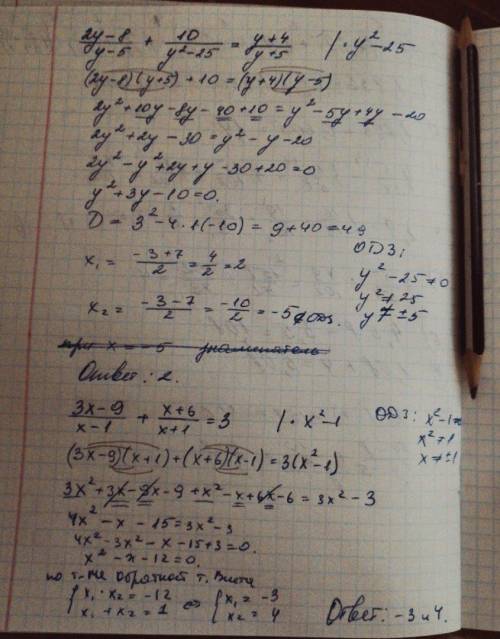 (2y-8)/(y-5) + 10/(y²-25) = (y+4)/(y+5) | · y²-25
(2y-8)(y+5)+10=(y+4)(y-5)
2y²+10y-8y-40+10=y²-5y+4y-20
2y²+2y-30=y²-y-20
2y²-y²+2y+y-30+20=0
y²+3y-10=0.
D= 3²-4·1(-10)= 9+40=49
x₁ = (-3+7)/2 = 4/2 = 2
x₂ = (-3-7)/2 = -10/2 = -5 ∉ ОДЗ.
ОДЗ:
y²-25≠0
y²≠25
y≠±5
при x=-5 знаменатель
Ответ: 2.
(3x-9)/(x-1) + (x+6)/(x+1) = 3 | · x²-1
ОДЗ: x²-1≠0
x²≠1
x≠±1
(3x-9)(x+1)+(x+6)(x-1)=3(x²-1)
3x²+3x-9x-9+x²-x+6x-6=3x²-3
4x²-x-15=3x²-3
4x²-3x²-x-15+3=0.
x²-x-12=0.
по т-ме обратной т. Виета
{ x₁·x₂=-12 ⇔ { x₁=-3
x₁+x₂=1 x₂=4
Ответ: -3 и 4.